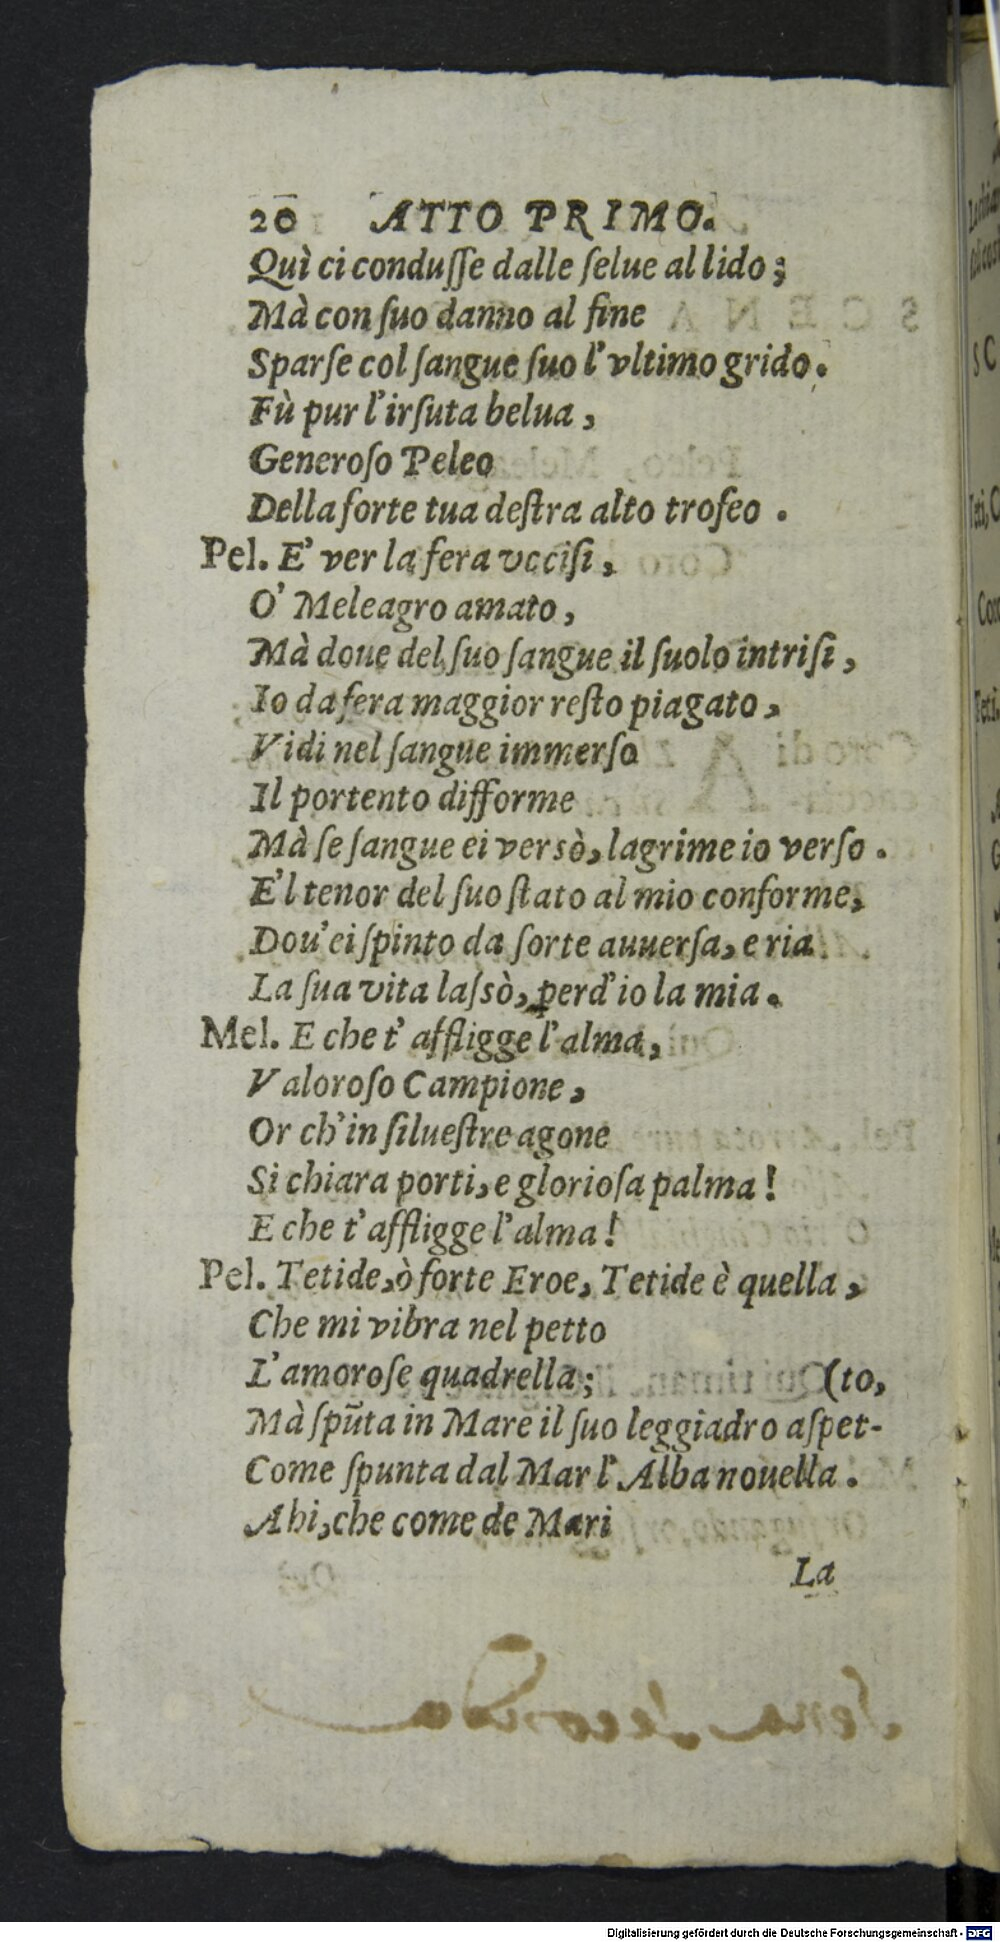 20 ATTO PRIMO.
Quì ci conduſſe dalle ſelue al lido;
Mà con ſuo danno al fine
Sparſe col ſangue ſuo l'vltimo grido.
Fù pur l'irſuta belua,
Generoſo Peleo
Della forte tua deſtra alto trofeo.
Pel. E' ver la fera vcciſi,
O' Meleagro amato,
Mà doue del ſuo ſangue il ſuolo intriſi,
Io da fera maggior reſto piagato,
Vidi nel ſangue immerſo
Il portento difforme
Mà ſe ſangue ei versò, lagrime io verſo.
E'l tenor del ſuo ſtato al mio conforme,
Dou'ei ſpinto da ſorte auuerſa, e ria
La ſua vita laſsò, perd'io la mia.
Mel. E che t'affligge l'alma,
Valoroſo Campione,
Or ch'in ſilueſtre agone
Si chiara porti, e glorioſa palma!
E che t'affligge l'alma!
Pel. Tetide, ò forte Eroe, Tetide è quella,
Che mi vibra nel petto
L'amoroſe quadrella; (to,
Mà ſpūta in Mare il ſuo leggiadro aſpet-
Come ſpunta dal Mar l'Alba nouella.
Ahi, che come de Mari
La
Digitalisierung gefördert durch die Deutsche Forschungsgemeinschaft - DFG